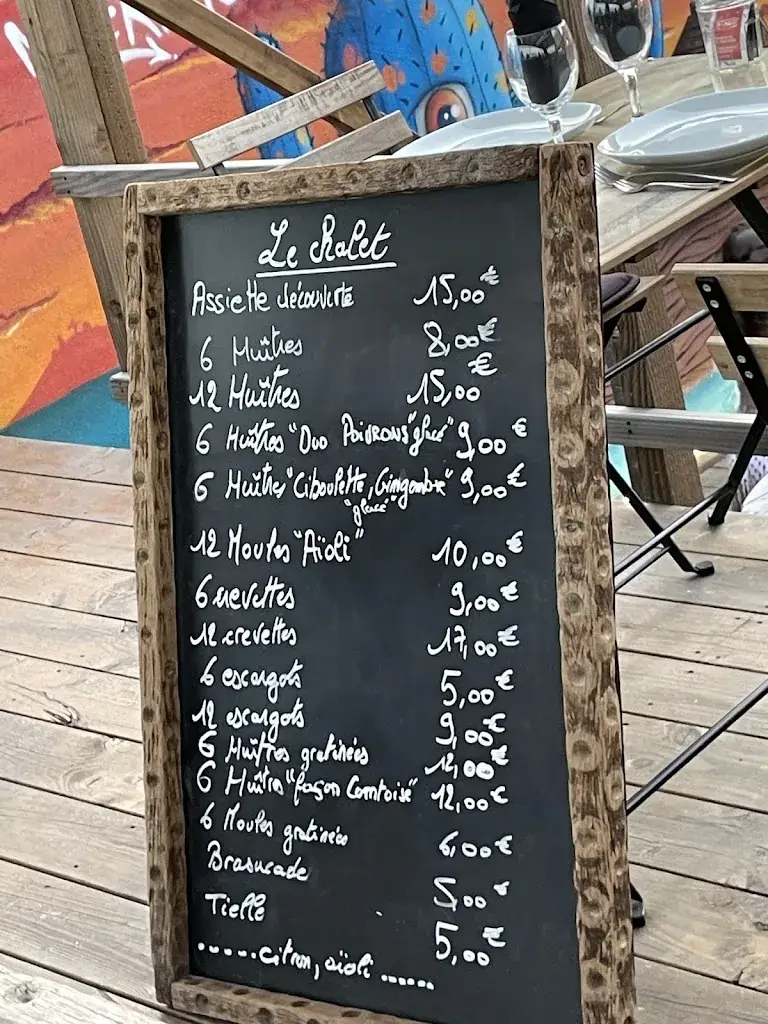 Le Chalet
Assiette découverte 15,00€
6 Huîtres 8,00€
12 Huîtres 15,00€
6 Huîtres "Duo Poivrons" "glacé" 9,00€
6 Huîtres "Ciboulette, Gingembre" 9,00€
"glacé"
12 Moules "Aïoli" 10,00€
6 crevettes 9,00€
12 crevettes 17,00€
6 escargots 5,00€
12 escargots 9,00€
6 Huîtres gratinées 12,00€
6 Huîtres "façon Comtoise" 12,00€
6 Moules gratinées 6,00€
Brasucade 5,00€
Tielle 5,00€
......citron, aïoli ......